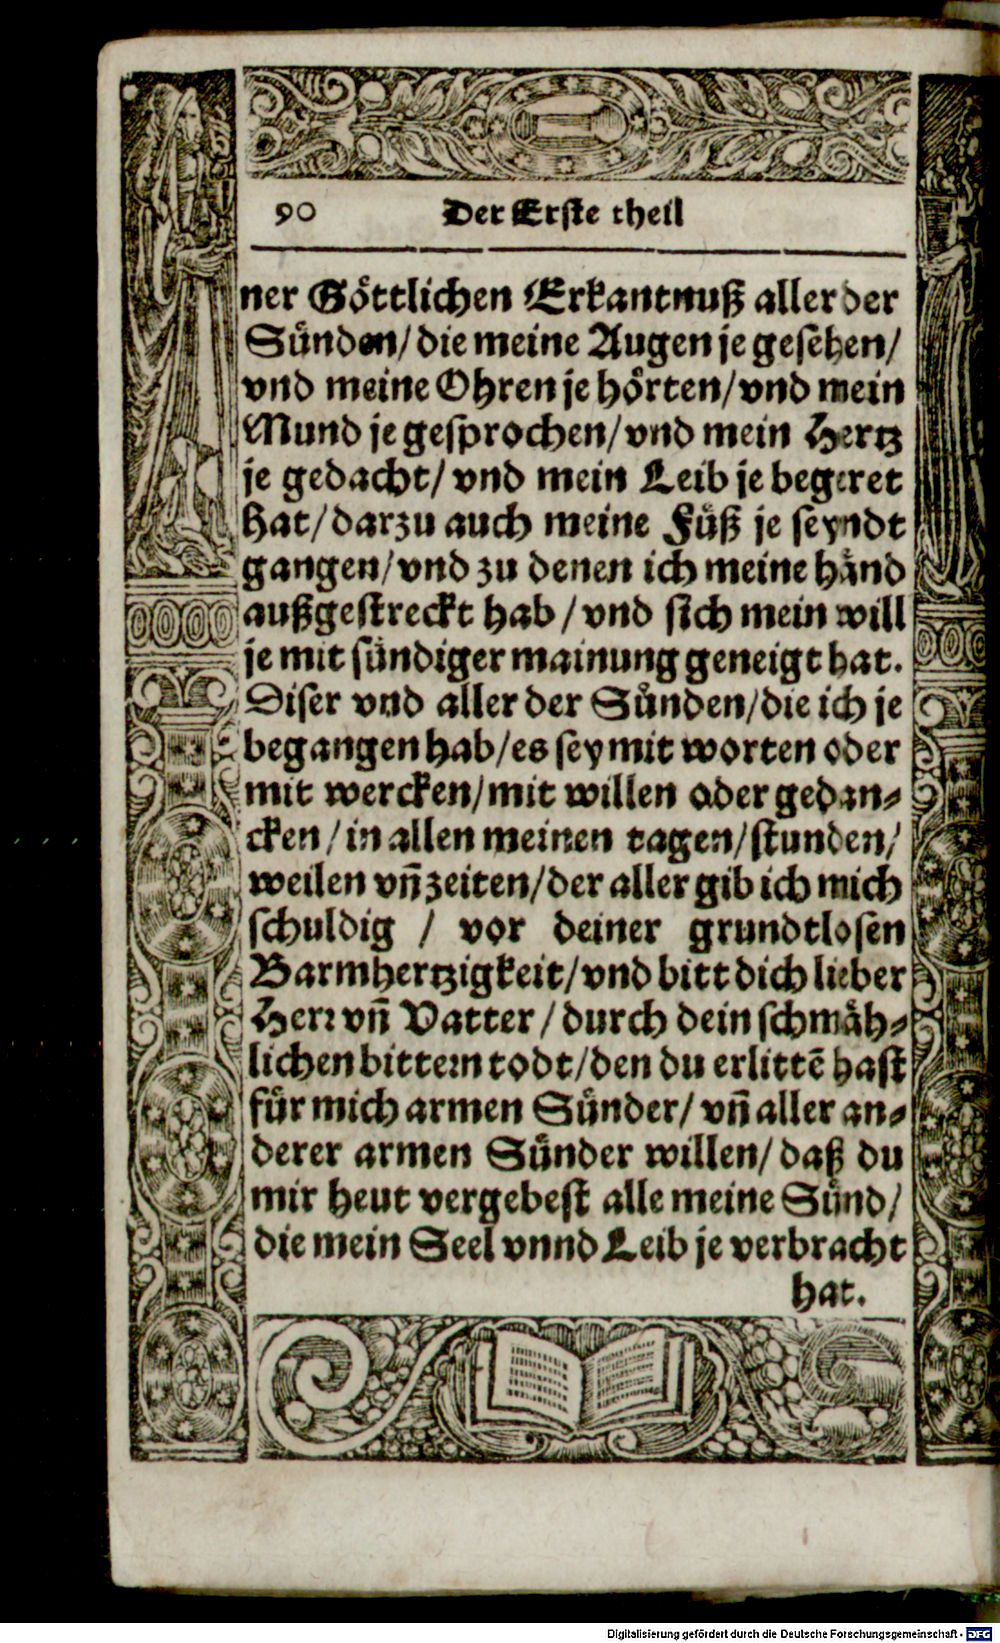 90 Der Erste theil
ner Göttlichen Erkantnuß aller der
Sünden/ die meine Augen je gesehen/
vnd meine Ohren je hörten/ vnd mein
Mund je gesprochen/ vnd mein Hertz
je gedacht/ vnd mein Leib je begeret
hat/ darzu auch meine Füß je seyndt
gangen/ vnd zu denen ich meine händ
außgestreckt hab / vnd sich mein will
je mit sündiger mainung geneigt hat.
Diser vnd aller der Sünden/ die ich je
begangen hab/ es sey mit worten oder
mit wercken/ mit willen oder gedan⸗
cken / in allen meinen tagen/ stunden/
weilen vñ zeiten/ der aller gib ich mich
schuldig / vor deiner grundtlosen
Barmhertzigkeit/ vnd bitt dich lieber
Herr vñ Vatter / durch dein schmäh⸗
lichen bittern todt/ den du erlittē hast
für mich armen Sünder/ vñ aller an⸗
derer armen Sünder willen/ daß du
mir heut vergebest alle meine Sünd/
die mein Seel vnnd Leib je verbracht
hat.
Digitalisierung gefördert durch die Deutsche Forschungsgemeinschaft - DFG